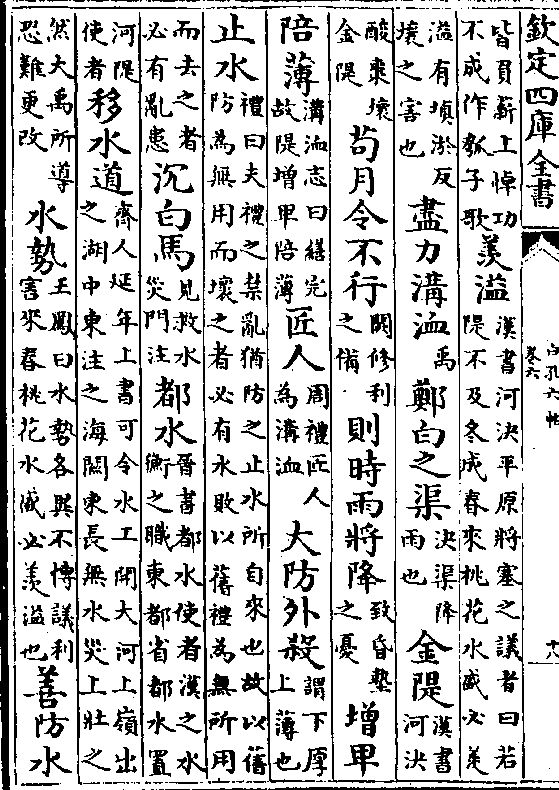 欽定四庫全書
白孔六帖
卷六
十八
皆負薪上悼功
不成作瓠子歌
羨溢
漢書河決平原將塞之議者曰若
隄不及冬成春來桃花水盛必羨
溢有填淤反
壤之害也
盡力溝洫
禹
鄭白之渠
決渠降
雨也
金隄
漢書
河決
酸棗壞
金隄
苟月令不行
闕修利
之備
則時雨將降
致昏墊
之憂
增卑
陪薄
溝洫志曰繕完
故隄增卑陪薄
匠人
周禮匠人
為溝洫
大防外殺
謂下厚
上薄也
止水
禮曰夫禮之禁亂猶防之止水所自來也故以舊
防為無用而壞之者必有水敗以舊禮為無所用
而去之者
必有亂患
沉白馬
見救水
災門注
都水
晉書都水使者漢之水
衡之職東都省都水置
河隄
使者
移水道
齊人延年上書可令水工開大河上嶺出
之湖中東注之海關東長無水災上壯之
然大禹所導
恐難更改
水勢
王鳳曰水勢各異不博議利
害來春桃花水盛必羨溢也
善防水